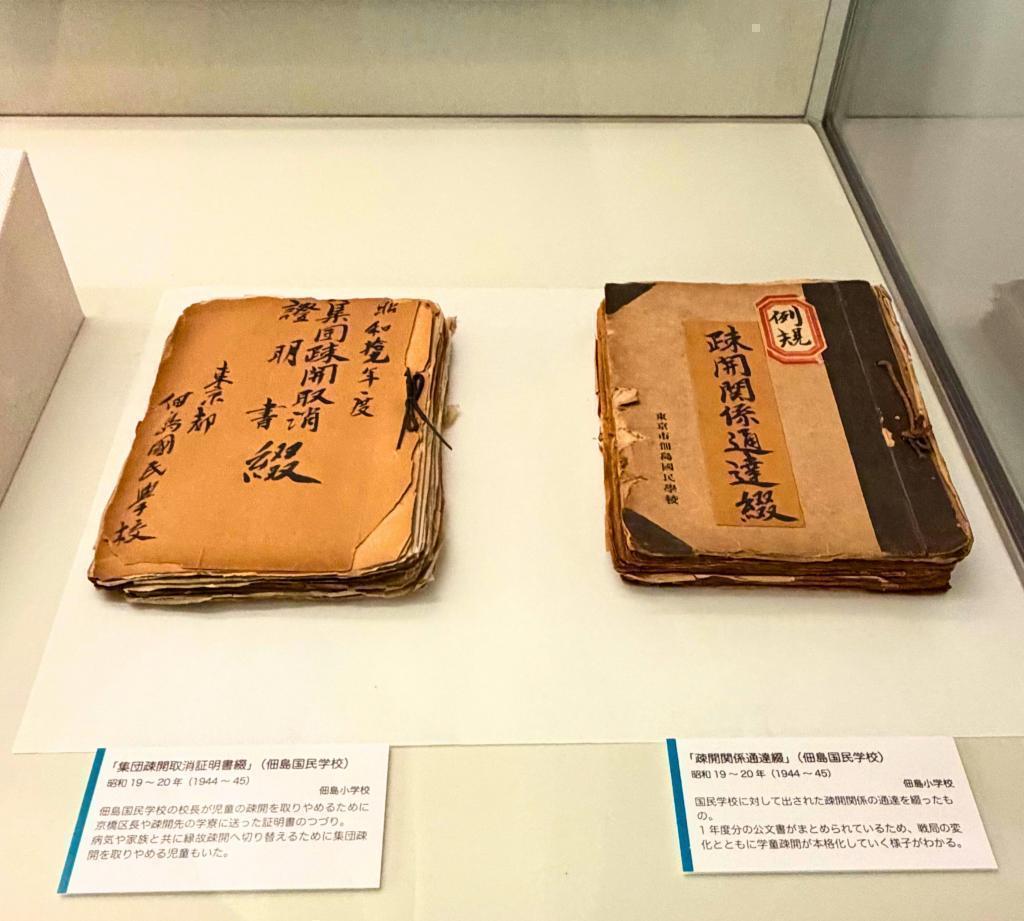 昭和 年度
集団疎開取消
證明書綴
東京都
佃島國民學校
例規
疎開関係通達綴
東京市佃島國民學校
「集団疎開取消証明書綴」（佃島国民学校）
昭和 19 ～ 20 年（1944 ～ 45）
佃島小学校
佃島国民学校の校長が児童の疎開を取りやめるために
京橋区長や疎開先の学寮に送った証明書のつづり。
病気や家族と共に縁故疎開へ切り替えるために集団疎
開を取りやめる児童もいた。
「疎開関係通達綴」（佃島国民学校）
昭和 19 ～ 20 年（1944 ～ 45）
佃島小学校
国民学校に対して出された疎開関係の通達を綴ったも
の。
１年度分の公文書がまとめられているため、戦局の変
化とともに学童疎開が本格化していく様子がわかる。